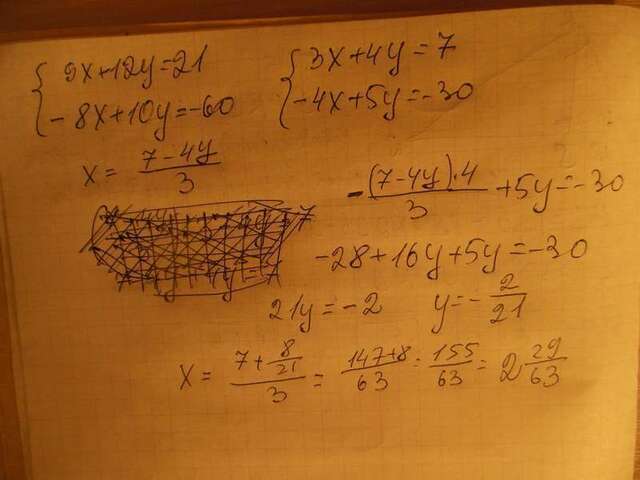 9x+12y=21 3x+4y=7
-8x+10y=-60 -4x+5y=-30
x = (7-4y)/3
-((7-4y)·4)/3 +5y=-30
-28+16y+5y=-30
21y=-2 y=-2/21
x = (7+8/21)/3 = (147+8)/63 = 155/63 = 2 29/63